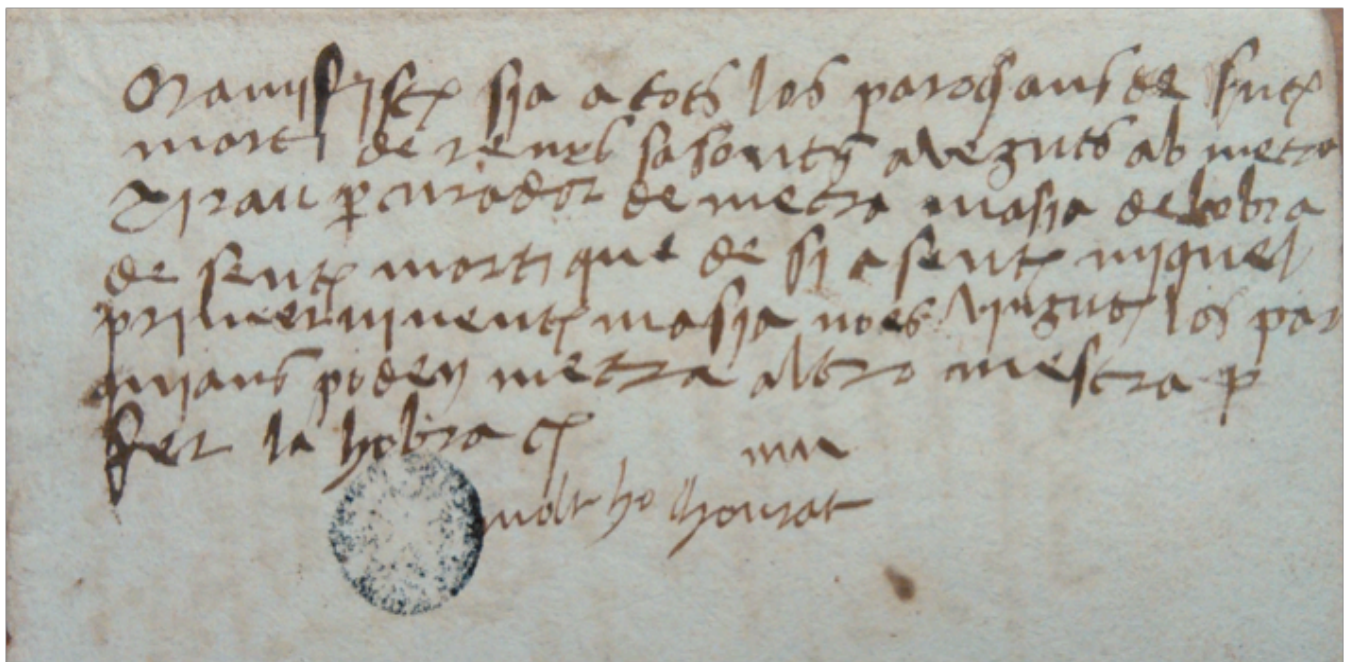 Manifest sia a tots los parochans de sent
morti de renys sa son avenguts ab metra
Xirau percurador de metra masia de lobra
de sent morti que de si a sent miquel
primervinent masia no es vingut los par
quians poden metra altro mestra per
fer la hobra
molt ho honrat